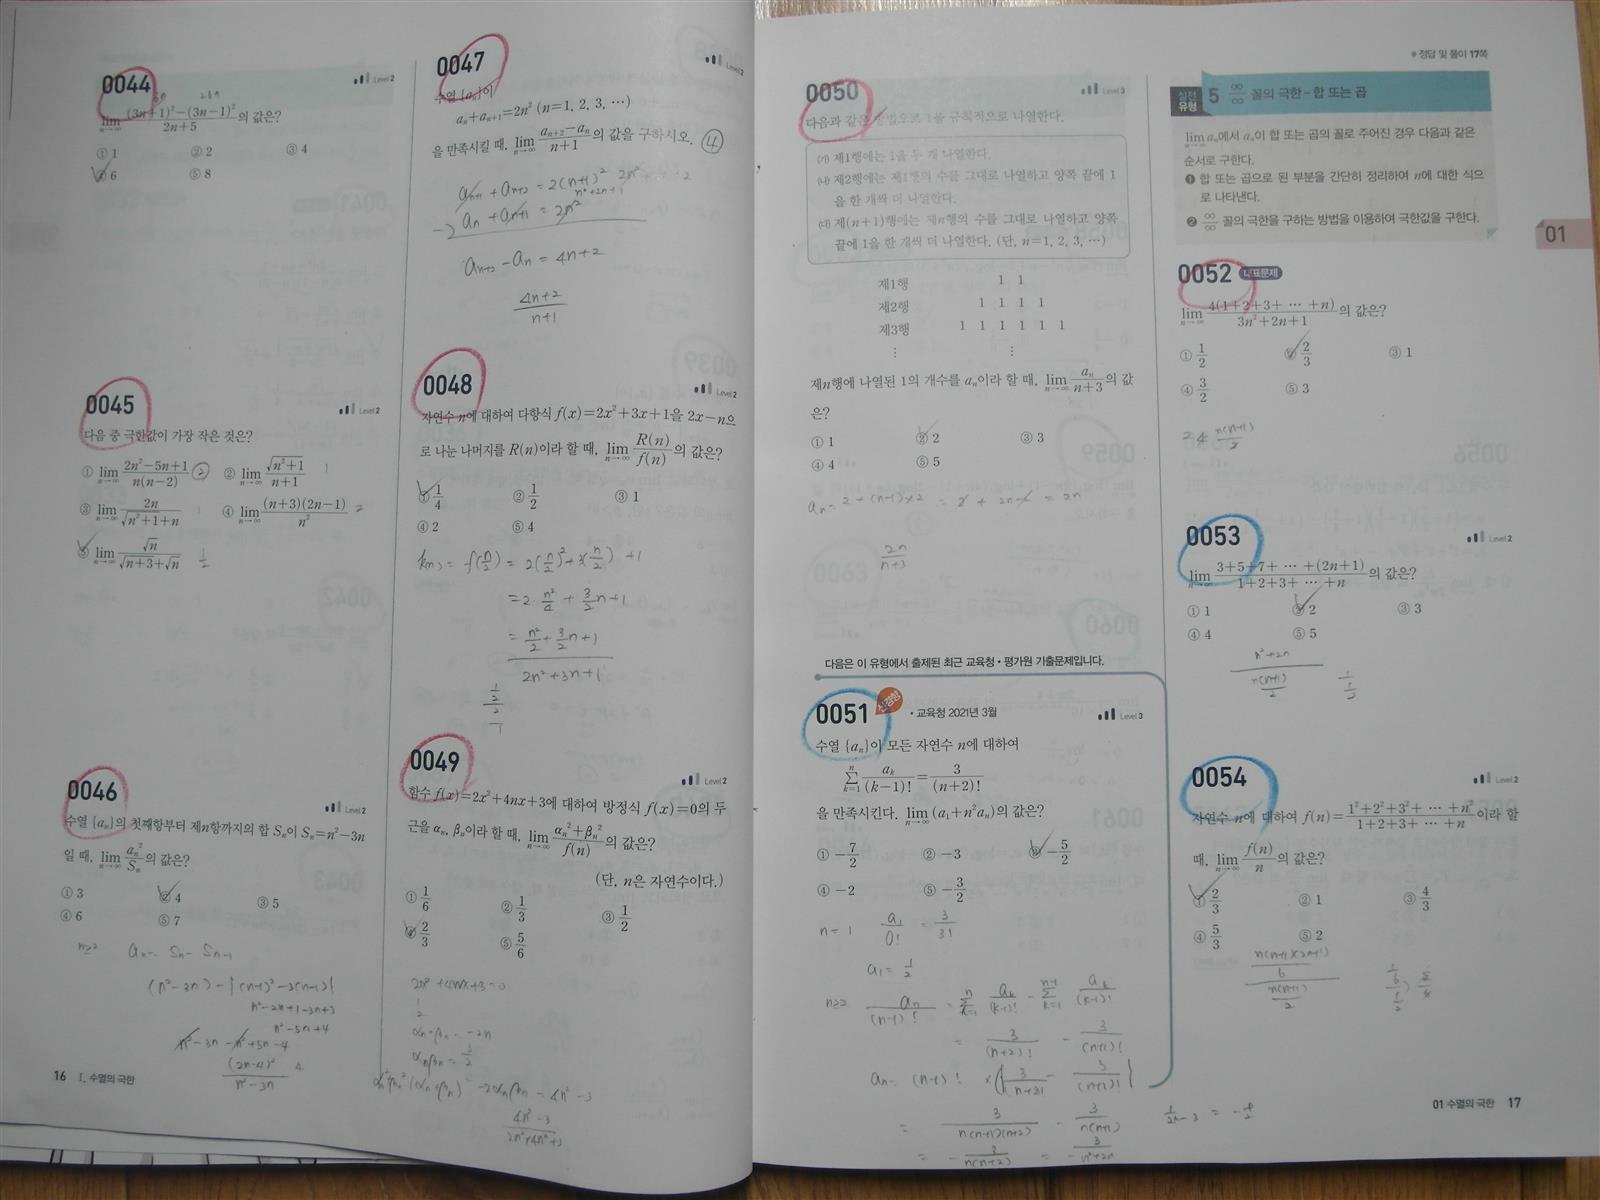 0044
Level 2
lim n→∞ (3n+1)²−(3n−1)² / 2n+5 의 값은?
① 1 ② 2 ③ 4
④ 6 ⑤ 8
0045
Level 2
다음 중 극한값이 가장 작은 것은?
① lim n→∞ 2n²−5n+1 / n(n−2) ② ② lim n→∞ √n²+1 / n+1 1
③ lim n→∞ 2n / √n²+1+n 1 ④ lim n→∞ (n+3)(2n−1) / n² 2
⑤ lim n→∞ √n / √n+3+√n 1/2
0046
Level 2
수열 {aₙ}의 첫째항부터 제n항까지의 합 Sₙ이 Sₙ=n²−3n
일 때, lim n→∞ aₙ²/Sₙ 의 값은?
① 3 ② 4 ③ 5
④ 6 ⑤ 7
n≥2 aₙ = Sₙ − Sₙ₋₁
(n²−3n) − {(n−1)²−3(n−1)}
n²−2n+1−3n+3
n²−5n+4
n²−3n −n²+5n−4
(2n−4)² / n²−3n 4
16 Ⅰ. 수열의 극한
0047
Level 2
수열 {aₙ}이
aₙ+aₙ₊₁=2n² (n=1, 2, 3, …)
을 만족시킬 때, lim n→∞ aₙ₊₂−aₙ / n+1 의 값을 구하시오. ④
aₙ₊₁ + aₙ₊₂ = 2(n+1)²
n²+2n+1
−) aₙ + aₙ₊₁ = 2n²
aₙ₊₂ − aₙ = 4n+2
4n+2 / n+1
0048
Level 2
자연수 n에 대하여 다항식 f(x)=2x²+3x+1을 2x−n으
로 나눈 나머지를 R(n)이라 할 때, lim n→∞ R(n)/f(n) 의 값은?
① 1/4 ② 1/2 ③ 1
④ 2 ⑤ 4
R(n) = f(n/2) = 2(n/2)²+3(n/2)+1
= 2· n²/4 + 3/2 n+1
= n²/2 + 3/2 n+1
2n²+3n+1
0049
Level 2
함수 f(x)=2x²+4nx+3에 대하여 방정식 f(x)=0의 두
근을 αₙ, βₙ이라 할 때, lim n→∞ αₙ²+βₙ² / f(n) 의 값은?
(단, n은 자연수이다.)
① 1/6 ② 1/3 ③ 1/2
④ 2/3 ⑤ 5/6
2x²+4nx+3=0
αₙ+βₙ = −2n
αₙβₙ = 3/2
4n²−3
2n²+4n²+3
0050
Level 3
다음과 같은 방법으로 1을 규칙적으로 나열한다.
㈎ 제1행에는 1을 두 개 나열한다.
㈏ 제2행에는 제1행의 수를 그대로 나열하고 양쪽 끝에 1
을 한 개씩 더 나열한다.
㈐ 제(n+1)행에는 제n행의 수를 그대로 나열하고 양쪽
끝에 1을 한 개씩 더 나열한다. (단, n=1, 2, 3, …)
제1행 1 1
제2행 1 1 1 1
제3행 1 1 1 1 1 1
⋮ ⋮
제n행에 나열된 1의 개수를 aₙ이라 할 때, lim n→∞ aₙ / n+3 의 값
은?
① 1 ② 2 ③ 3
④ 4 ⑤ 5
aₙ = 2+(n−1)×2 = 2+2n−2 = 2n
2n / n+3
다음은 이 유형에서 출제된 최근 교육청·평가원 기출문제입니다.
0051 신경향 · 교육청 2021년 3월
Level 3
수열 {aₙ}이 모든 자연수 n에 대하여
n Σ k=1 aₖ/(k−1)! = 3/(n+2)!
을 만족시킨다. lim n→∞ (a₁+n²aₙ)의 값은?
① −7/2 ② −3 ③ −5/2
④ −2 ⑤ −3/2
n=1 a₁/0! = 3/3!
a₁ = 1/2
n≥2 aₙ/(n−1)! = n Σ k=1 aₖ/(k−1)! − n−1 Σ k=1 aₖ/(k−1)!
= 3/(n+2)! − 3/(n+1)!
aₙ = (n−1)! × {3/(n+2)! − 3/(n+1)!}
= 3/n(n+1)(n+2) − 3/n(n+1)
= − 3/n(n+2) = − 3/n²+2n
정답 및 풀이 17쪽
실전 유형 5 ∞/∞ 꼴의 극한 - 합 또는 곱
lim n→∞ aₙ에서 aₙ이 합 또는 곱의 꼴로 주어진 경우 다음과 같은
순서로 구한다.
❶ 합 또는 곱으로 된 부분을 간단히 정리하여 n에 대한 식으
로 나타낸다.
❷ ∞/∞ 꼴의 극한을 구하는 방법을 이용하여 극한값을 구한다.
01
0052 대표문제
lim n→∞ 4(1+2+3+ … +n) / 3n²+2n+1 의 값은?
① 1/2 ② 2/3 ③ 1
④ 3/2 ⑤ 3
n(n+1)/2
0053
Level 2
lim n→∞ 3+5+7+ … +(2n+1) / 1+2+3+ … +n 의 값은?
① 1 ② 2 ③ 3
④ 4 ⑤ 5
n²+2n
n(n+1)/2
0054
Level 2
자연수 n에 대하여 f(n)= 1²+2²+3²+ … +n² / 1+2+3+ … +n 이라 할
때, lim n→∞ f(n)/n 의 값은?
① 2/3 ② 1 ③ 4/3
④ 5/3 ⑤ 2
n(n+1)(2n+1)/6
n(n+1)/2
01 수열의 극한 17